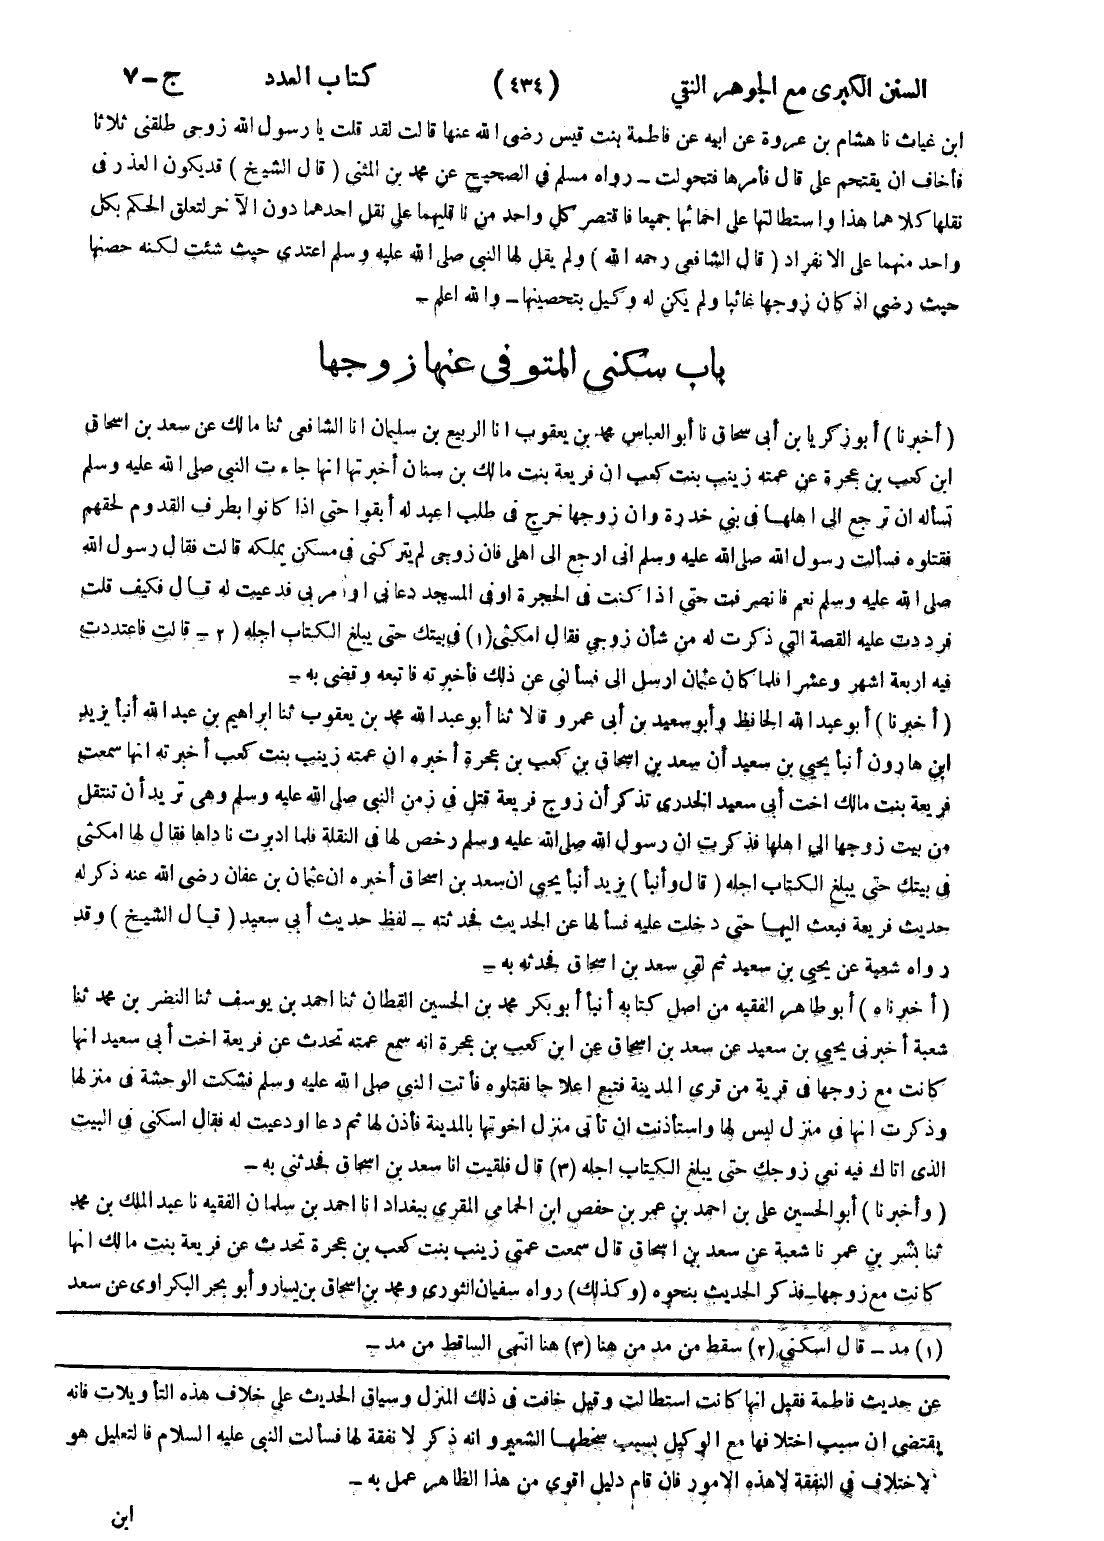 السنن الكبرى مع الجوهر النقي (٤٣٤) كتاب العدد ج-٧
ابن غياث نا هشام بن عروة عن ابيه عن فاطمة بنت قيس رضى الله عنها قالت لقد قلت يا رسول الله زوجى طلقنى ثلاثا
فأخاف ان يقتحم على قال فأمرها فتحولت ـ رواه مسلم فى الصحيح عن محمد بن المثنى (قال الشيخ) قد يكون العذر فى
نقلها كلاهما هذا واستطالتها على احمائها جميعا فاقتصر كل واحد من ناقليهما على نقل احدهما دون الآخر لتعلق الحكم بكل
واحد منهما على الانفراد (قال الشافعى رحمه الله) ولم يقل لها النبي صلى الله عليه وسلم اعتدي حيث شئت لكنه حصنها
حيث رضي اذ كان زوجها غائبا ولم يكن له وكيل بتحصينها ـ والله اعلم ـ
باب سكنى المتوفى عنها زوجها
(أخبرنا) أبو زكريا بن أبى سحاق نا أبو العباس محمد بن يعقوب انا الربيع بن سليمان انا الشافعى ثنا مالك عن سعد بن اسحاق
ابن كعب بن عجرة عن عمته زينب بنت كعب ان فريعة بنت مالك بن سنان أخبرتها انها جاءت النبي صلى الله عليه وسلم
تسأله ان ترجع الى اهلها فى بني خدرة وان زوجها خرج فى طلب اعبد له أبقوا حتى اذا كانوا بطرف القدوم لحقهم
فقتلوه فسألت رسول الله صلى الله عليه وسلم انى ارجع الى اهلى فان زوجى لم يتركنى فى مسكن يملكه قالت فقال رسول الله
صلى الله عليه وسلم نعم فانصرفت حتى اذا كنت فى الحجرة اوفى المسجد دعانى او أمر بى فدعيت له قال فكيف قلت
فرددت عليه القصة التى ذكرت له من شأن زوجي فقال امكثى (١) فى بيتك حتى يبلغ الكتاب اجله (٢ ـ قالت فاعتددت
فيه اربعة اشهر وعشرا فلما كان عثمان ارسل الى فسألنى عن ذلك فأخبرته فاتبعه وقضى به ـ
(أخبرنا) أبو عبد الله الحافظ وأبو سعيد بن أبى عمرو قالا ثنا أبو عبد الله محمد بن يعقوب ثنا ابراهيم بن عبد الله أنبأ يزيد
ابن هارون أنبأ يحيى بن سعيد أن سعد بن اسحاق بن كعب بن عجرة أخبره ان عمته زينب بنت كعب أخبرته انها سمعت
فريعة بنت مالك اخت أبي سعيد الخدرى تذكر أن زوج فريعة قتل فى زمن النبي صلى الله عليه وسلم وهى تريد أن تنتقل
من بيت زوجها الى اهلها فذكرت ان رسول الله صلى الله عليه وسلم رخص لها فى النقلة فلما ادبرت ناداها فقال لها امكثى
فى بيتك حتى يبلغ الكتاب اجله (قال وأنبأ) يزيد أنبأ يحيى ان سعد بن اسحاق أخبره ان عثمان بن عفان رضى الله عنه ذكر له
حديث فريعة فبعث اليها حتى دخلت عليه فسألها عن الحديث فحدثته ـ لفظ حديث أبي سعيد (قال الشيخ) وقد
رواه شعبة عن يحيى بن سعيد ثم لقى سعد بن اسحاق فحدثه به ـ
(أخبرناه) أبو طاهر الفقيه من اصل كتابه أنبأ أبو بكر محمد بن الحسين القطان ثنا احمد بن يوسف ثنا النضر بن محمد ثنا
شعبة أخبرنى يحيى بن سعيد عن سعد بن اسحاق عن ابن كعب بن عجرة انه سمع عمته تحدث عن فريعة اخت أبى سعيد انها
كانت مع زوجها فى قرية من قرى المدينة فتبع اعلاجا فقتلوه فأتت النبي صلى الله عليه وسلم فشكت الوحشة فى منزلها
وذكرت انها فى منزل ليس لها واستأذنت ان تأتى منزل اخوتها بالمدينة فأذن لها ثم دعا او دعيت له فقال اسكنى فى البيت
الذى اتاك فيه نعى زوجك حتى يبلغ الكتاب اجله (٣) قال فلقيت انا سعد بن اسحاق فحدثنى به ـ
(وأخبرنا) أبو الحسين على بن احمد بن عمر بن حفص ابن الحمامى المقرى ببغداد انا احمد بن سلمان الفقيه نا عبد الملك بن محمد
ثنا بشر بن عمر نا شعبة عن سعد بن اسحاق قال سمعت عمتى زينب بنت كعب بن عجرة تحدث عن فريعة بنت مالك انها
كانت مع زوجها ـ فذكر الحديث بنحوه (وكذلك) رواه سفيان الثورى ومحمد بن اسحاق بن يسار وأبو بحر البكراوى عن سعد
(١) مد ـ قال اسكنى (٢) سقط من مد من هنا (٣) هنا انتهى الساقط من مد ـ
عن حديث فاطمة فقيل انها كانت استطالت وقيل خافت فى ذلك المنزل وسياق الحديث على خلاف هذه التأويلات فانه
يقتضى ان سبب اختلافها مع الوكيل بسبب سخطها الشعير وانه ذكر لا نفقة لها فسألت النبى عليه السلام فالتعليل هو
لاختلاف فى النفقة لا هذه الامور فان قام دليل اقوى من هذا الظاهر عمل به ـ
ابن